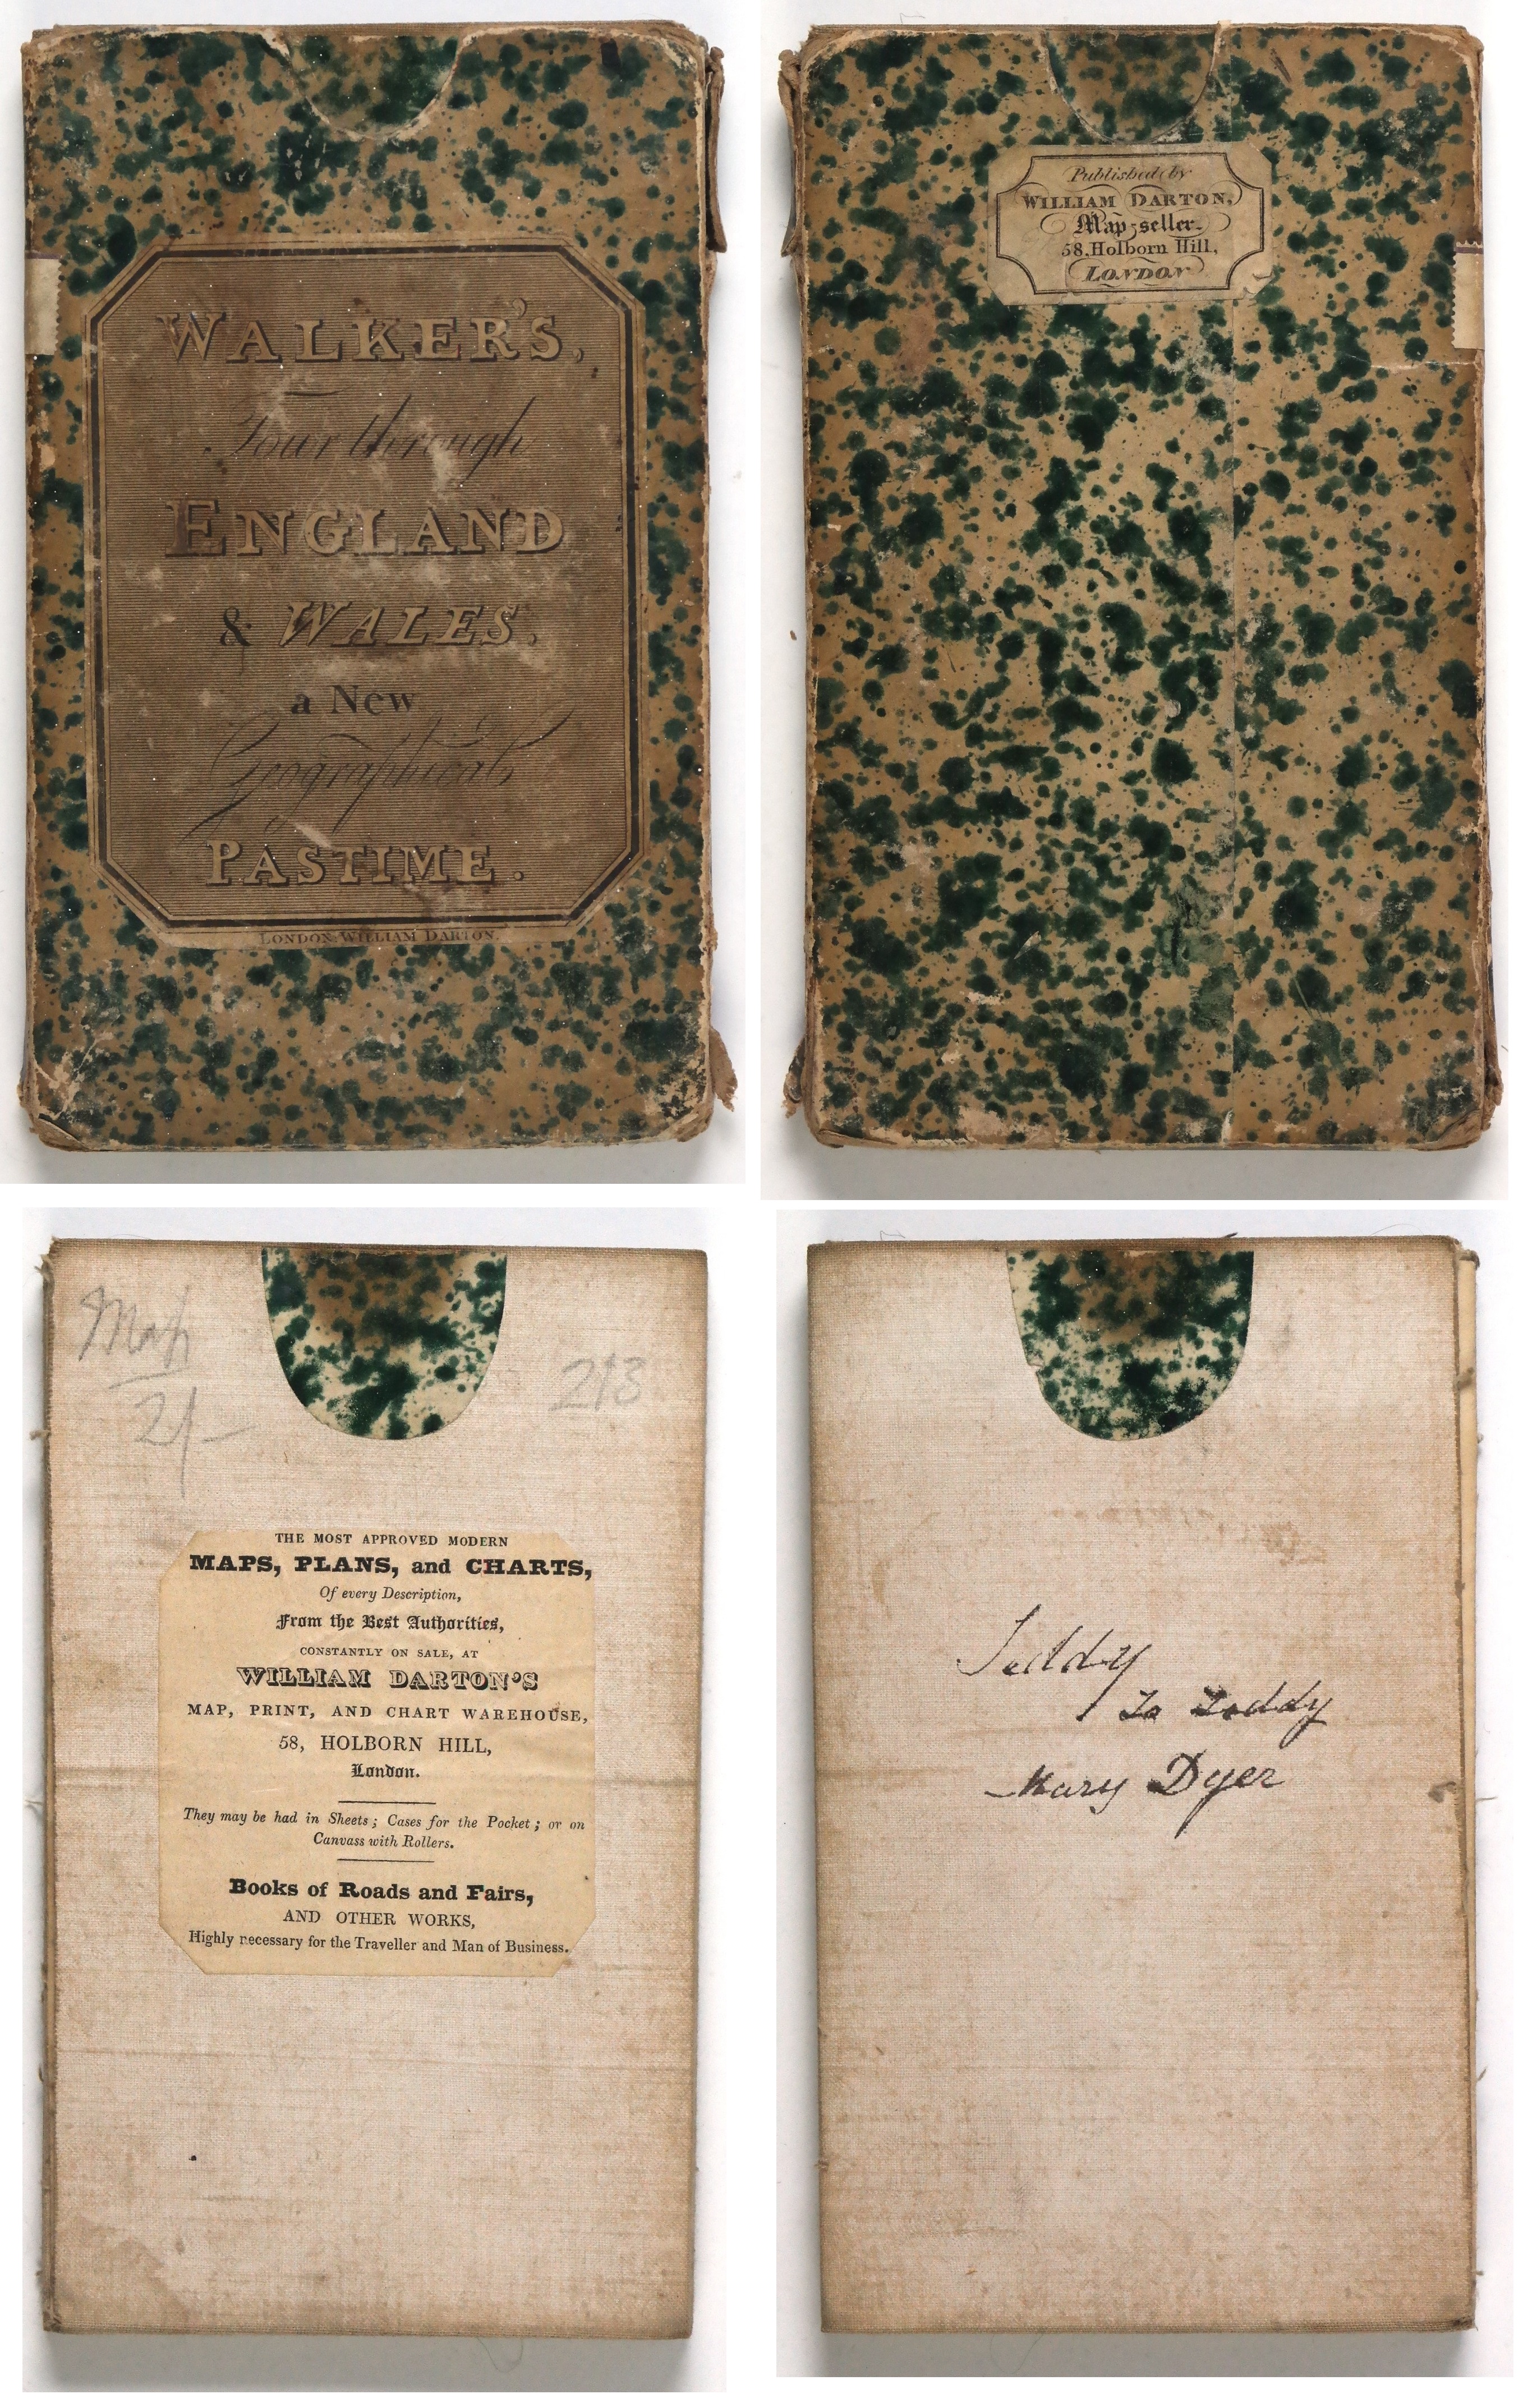 WALKER'S,
Tour through
ENGLAND
& WALES.
a New
Geographical
PASTIME.
LONDON: WILLIAM DARTON.
Published by
WILLIAM DARTON,
Map-seller.
58, Holborn Hill,
LONDON
Map
2/-
213
THE MOST APPROVED MODERN
MAPS, PLANS, and CHARTS,
Of every Description,
From the Best Authorities,
CONSTANTLY ON SALE, AT
WILLIAM DARTON'S
MAP, PRINT, AND CHART WAREHOUSE,
58, HOLBORN HILL,
London.
They may be had in Sheets; Cases for the Pocket; or on
Canvass with Rollers.
Books of Roads and Fairs,
AND OTHER WORKS,
Highly necessary for the Traveller and Man of Business.
Teddy
To Loddy
Mary Dyer